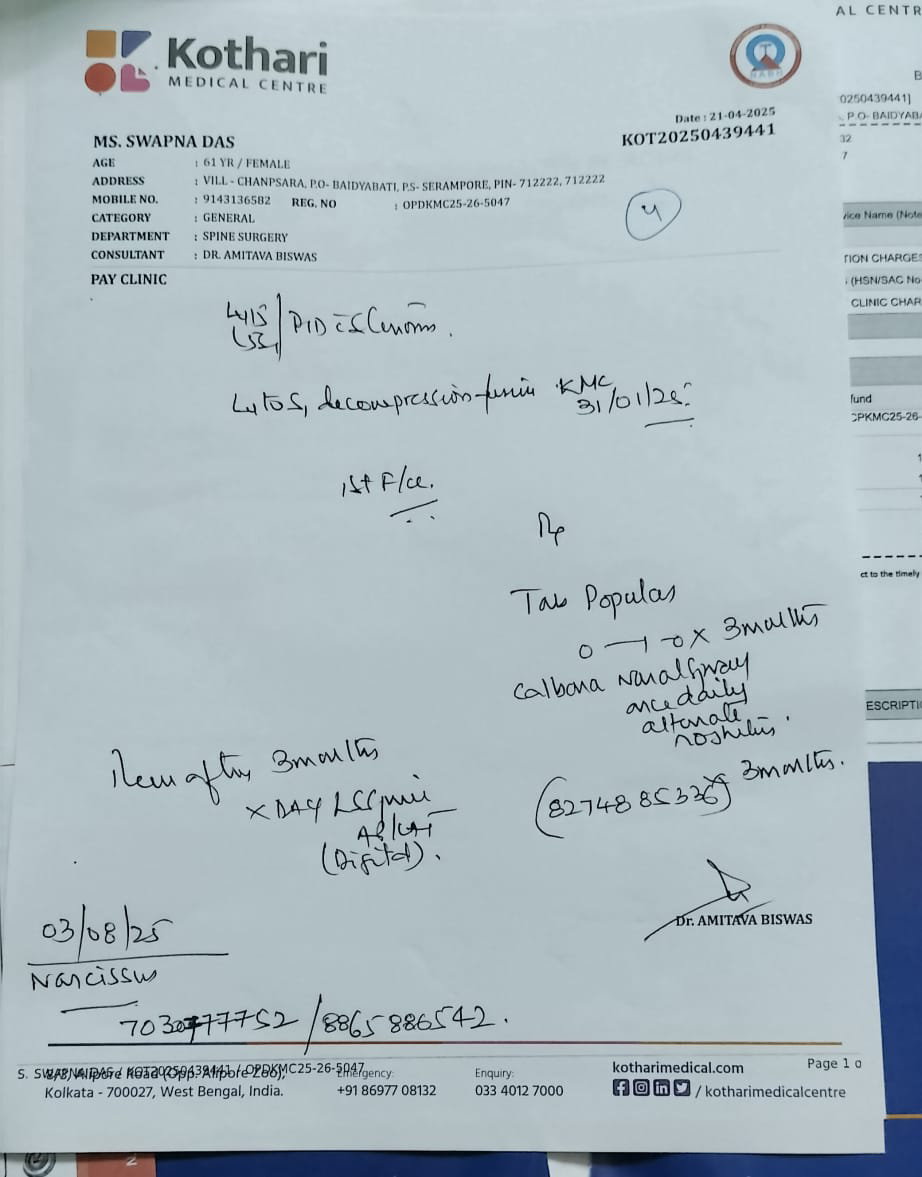 AL CENTR
Kothari
MEDICAL CENTRE
NABH
Date : 21-04-2025
KOT20250439441
MS. SWAPNA DAS
AGE : 61 YR / FEMALE
ADDRESS : VILL - CHANPSARA, P.O- BAIDYABATI, P.S- SERAMPORE, PIN- 712222, 712222
MOBILE NO. : 9143136582 REG. NO : OPDKMC25-26-5047
CATEGORY : GENERAL
DEPARTMENT : SPINE SURGERY
CONSULTANT : DR. AMITAVA BISWAS
PAY CLINIC
4
0250439441]
P.O- BAIDYAB
32
7
vice Name (Note
TION CHARGES
(HSN/SAC No
CLINIC CHAR
fund
CPKMC25-26-
ct to the timely
ESCRIPTI
L4/5
L5S1 PID
L4 to S1 decompression KMC
31/01/25
1st F/
Tab Populas
0 1 0 x 3 months
once daily
alternate
3 months.
after 3 months
(8274885336)
X
(Digital).
Dr. AMITAVA BISWAS
03/08/25
Narcissus
7030777752 / 8865886542.
S. SWAPNA DAS / KOT20250439441 / OPDKMC25-26-5047
8/3, Alipore Road (Opp. Alipore Zoo),
Kolkata - 700027, West Bengal, India.
Emergency:
+91 86977 08132
Enquiry:
033 4012 7000
kotharimedical.com
/ kotharimedicalcentre
Page 1 o